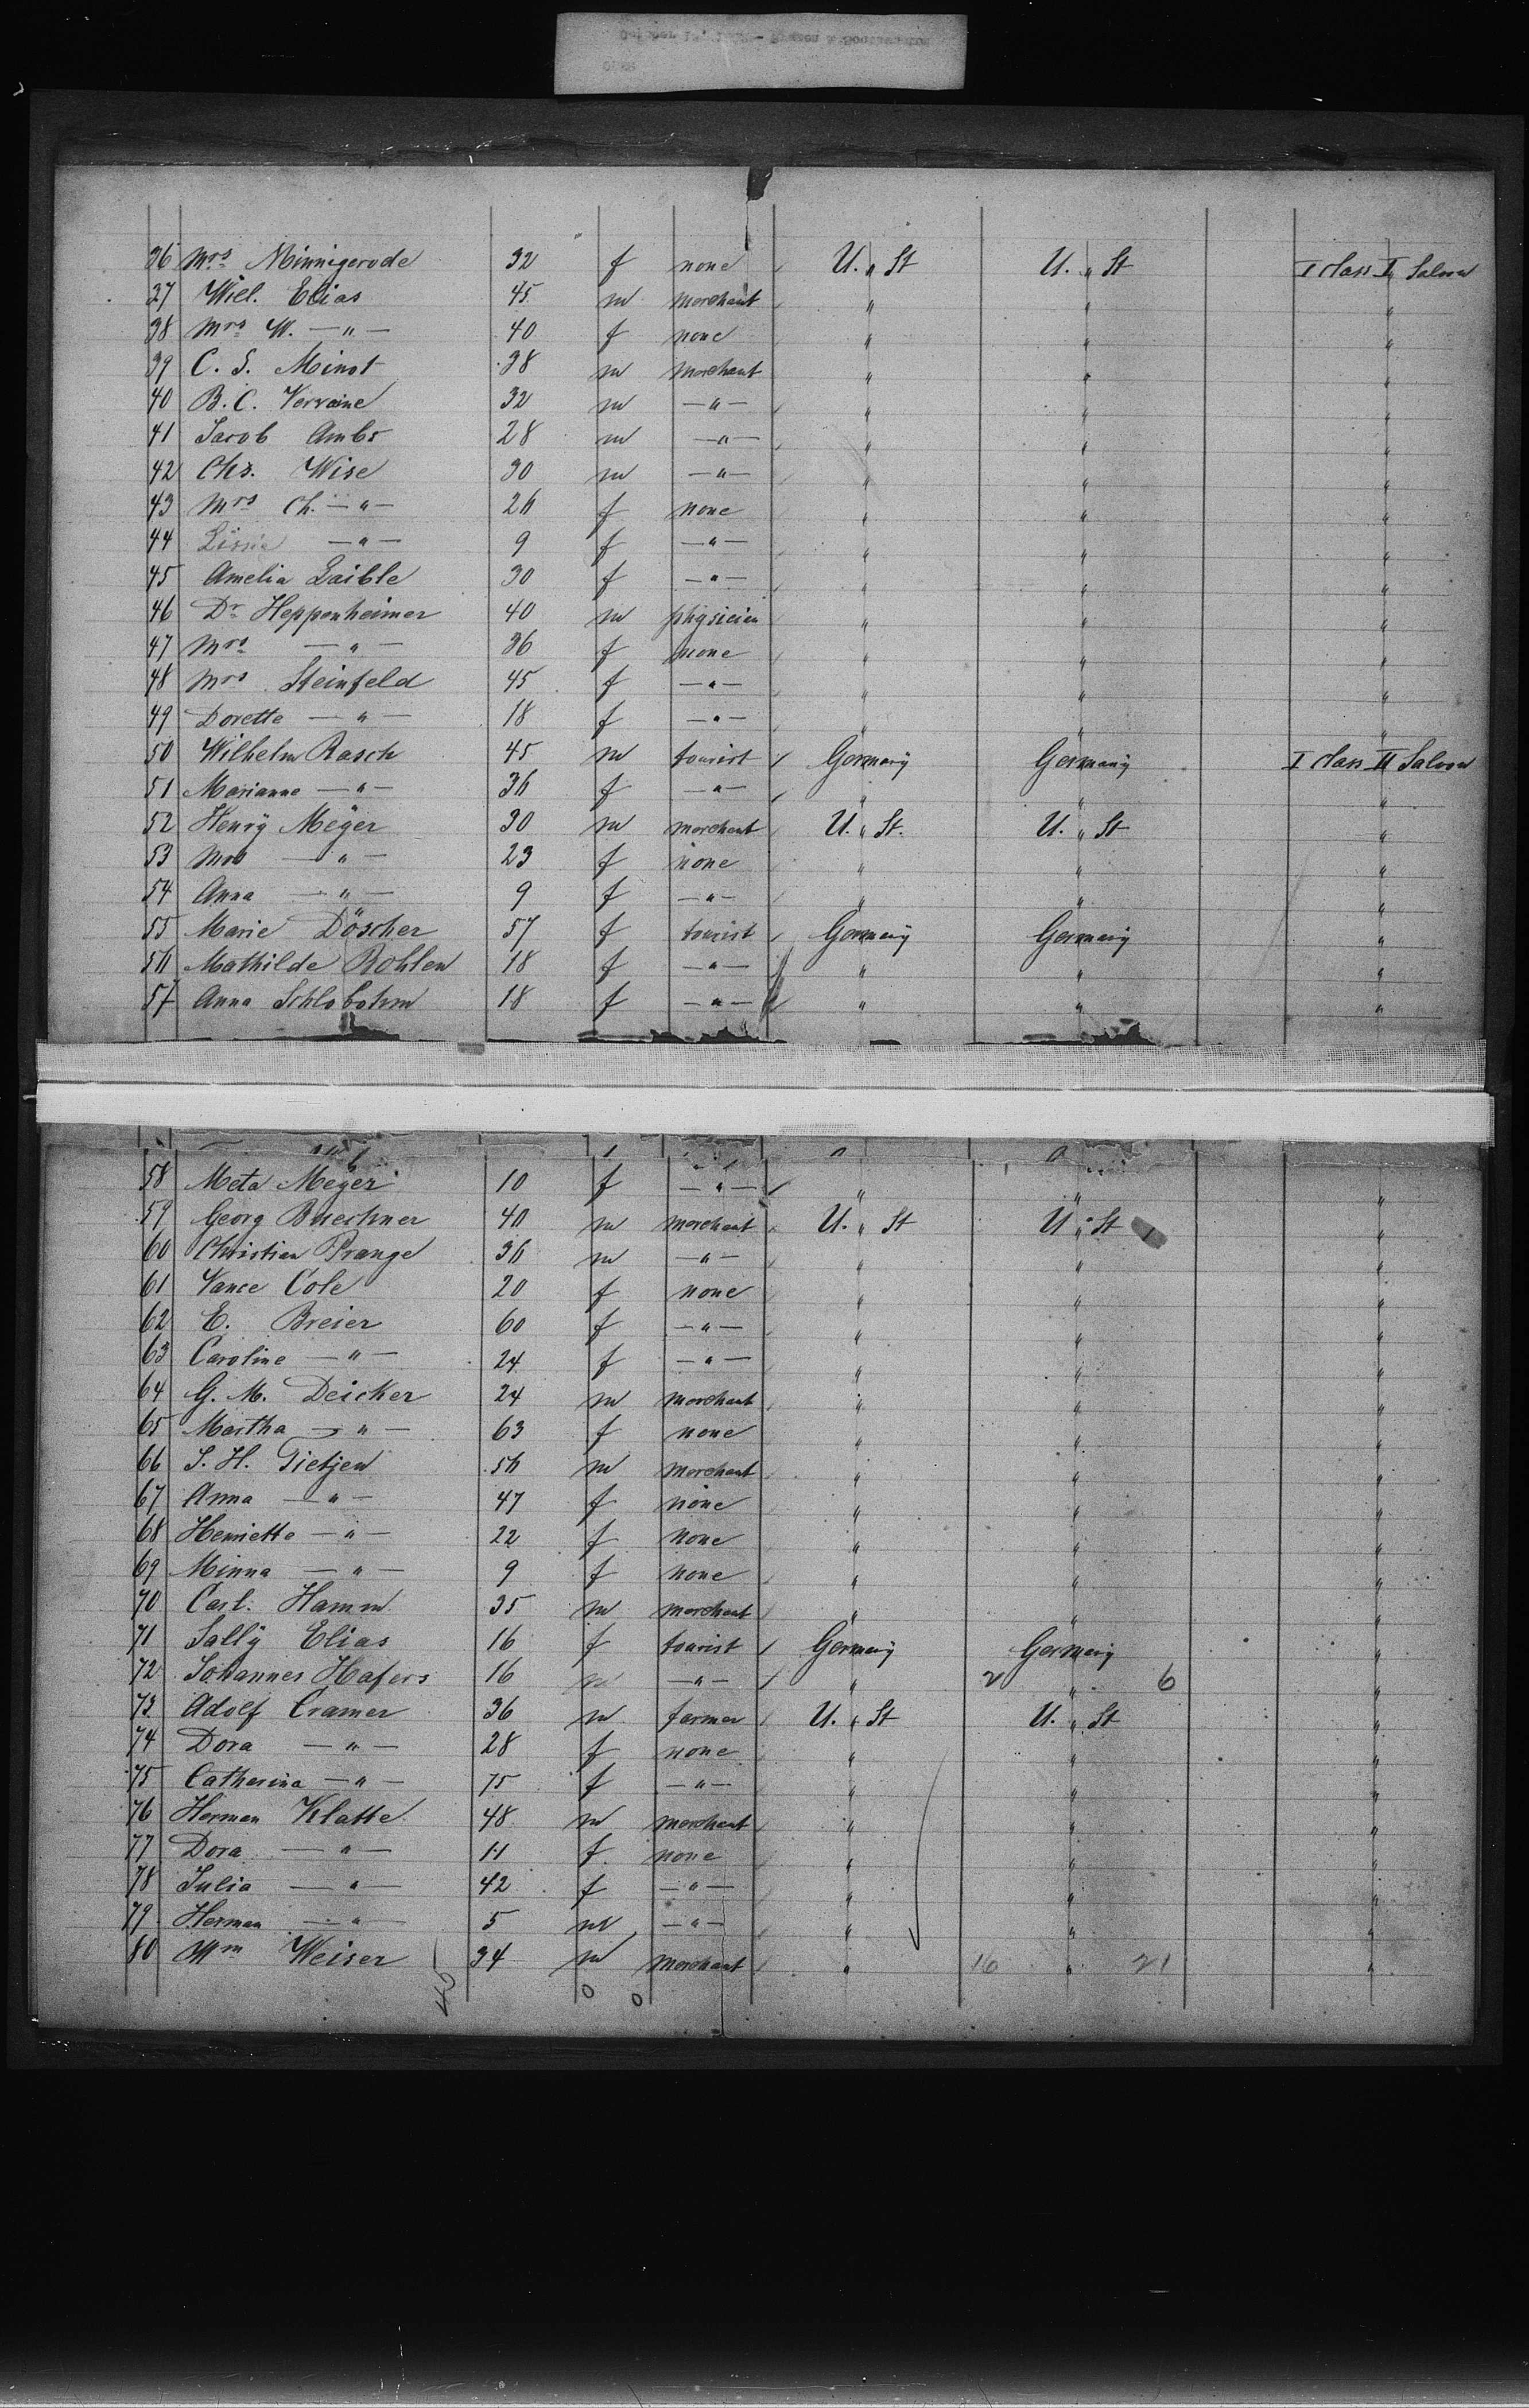 36 Mrs Minnigerode 32 f none U. " St U. " St I class I Saloon
37 Wiel. Elias 45 m merchant " " "
38 Mrs W. — " — 40 f none " " "
39 C. S. Minot 38 m merchant " " "
40 B. C. Vervaine 32 m — " — " " "
41 Jacob Ambs 28 m — " — " " "
42 Chs. Wise 30 m — " — " " "
43 Mrs Ch. — " — 26 f none " " "
44 Lissie — " — 9 f — " — " " "
45 Amelia Laible 30 f — " — " " "
46 Dr Heppenheimer 40 m physicien " " "
47 Mrs — " — 36 f none " " "
48 Mrs Steinfeld 45 f — " — " " "
49 Dorette — " — 18 f — " — " " "
50 Wilhelm Rasch 45 m tourist Germany Germany I class II Saloon
51 Marianne — " — 36 f — " — " " "
52 Henry Meÿer 30 m merchant U. " St. U. " St "
53 Mrs — " — 23 f none " " "
54 Anna — " — 9 f — " — " " "
55 Marie Döscher 57 f tourist Germany Germany "
56 Mathilde Rohlen 18 f — " — " " "
57 Anna Schlobohm 18 f — " — " " "
58 Meta Meyer 10 f — " — " " "
59 Georg Buechner 40 m merchant U. " St U. " St "
60 Christian Prange 36 m — " — " " "
61 Vance Cole 20 f none " " "
62 E. Breier 60 f — " — " " "
63 Caroline — " — 24 f — " — " " "
64 G. M. Deicker 24 m merchant " " "
65 Martha — " — 63 f none " " "
66 J. H. Tietjen 56 m merchant " " "
67 Anna — " — 47 f none " " "
68 Henriette — " — 22 f none " " "
69 Minna — " — 9 f none " " "
70 Carl. Hamm 35 m merchant " " "
71 Sally Elias 16 f tourist Germany Germany "
72 Johannes Hafers 16 m — " — " 2 " 6 "
73 Adolf Cramer 36 m farmer U. " St U. " St "
74 Dora — " — 28 f none " " "
75 Catharina — " — 75 f — " — " " "
76 Herman Klatte 48 m merchant " " "
77 Dora — " — 11 f none " " "
78 Julia — " — 42 f — " — " " "
79 Herman — " — 5 m — " — " " "
80 Wm Weiser 34 m merchant " 16 " 21 "
45 0 0